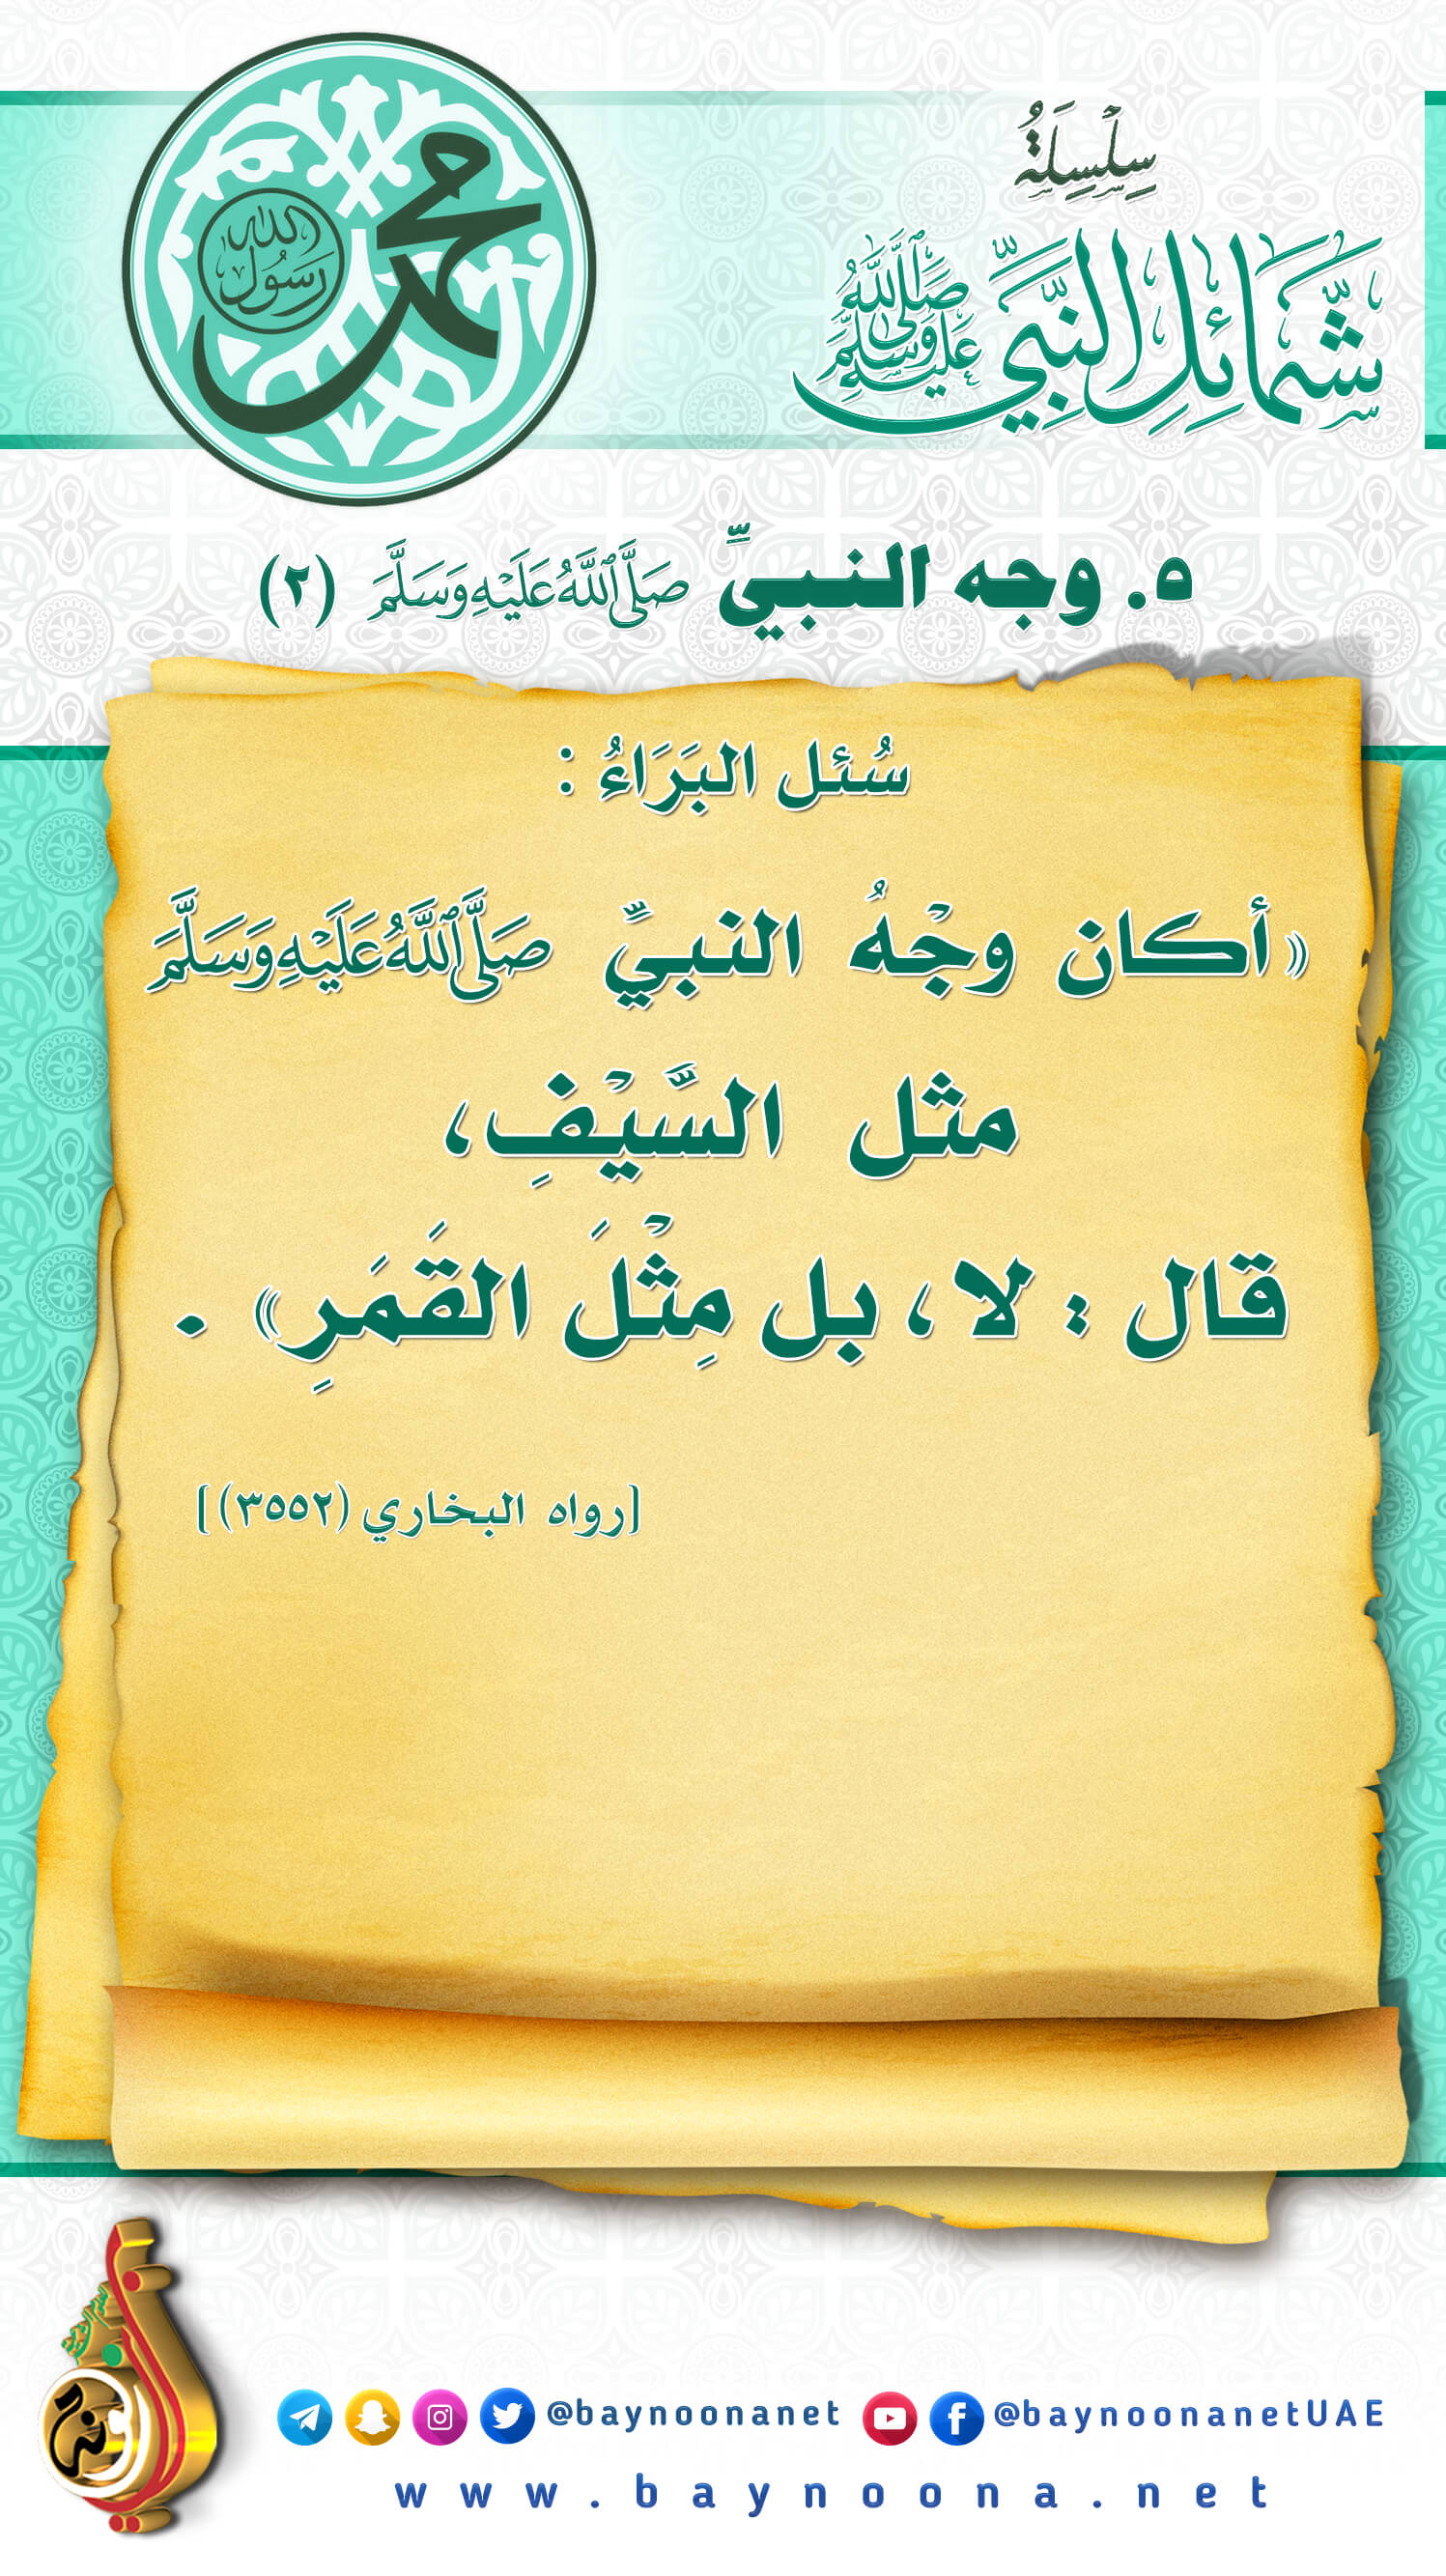 سِلْسِلَةُ
شَمَائِلِ النَّبِيِّ صَلَّى اللَّهُ عَلَيْهِ وَسَلَّمَ
محمد
رَسُول
الله
٥. وجه النبيِّ صَلَّى اللَّهُ عَلَيْهِ وَسَلَّمَ (٢)
سُئل البَرَاءُ :
«أكان وجْهُ النبيِّ صَلَّى اللَّهُ عَلَيْهِ وَسَلَّمَ
مثل السَّيْفِ،
قال : لا، بل مِثْلَ القَمَرِ» .
[رواه البخاري (٣٥٥٢)]
@baynoonanet @baynoonanetUAE
www.baynoona.net